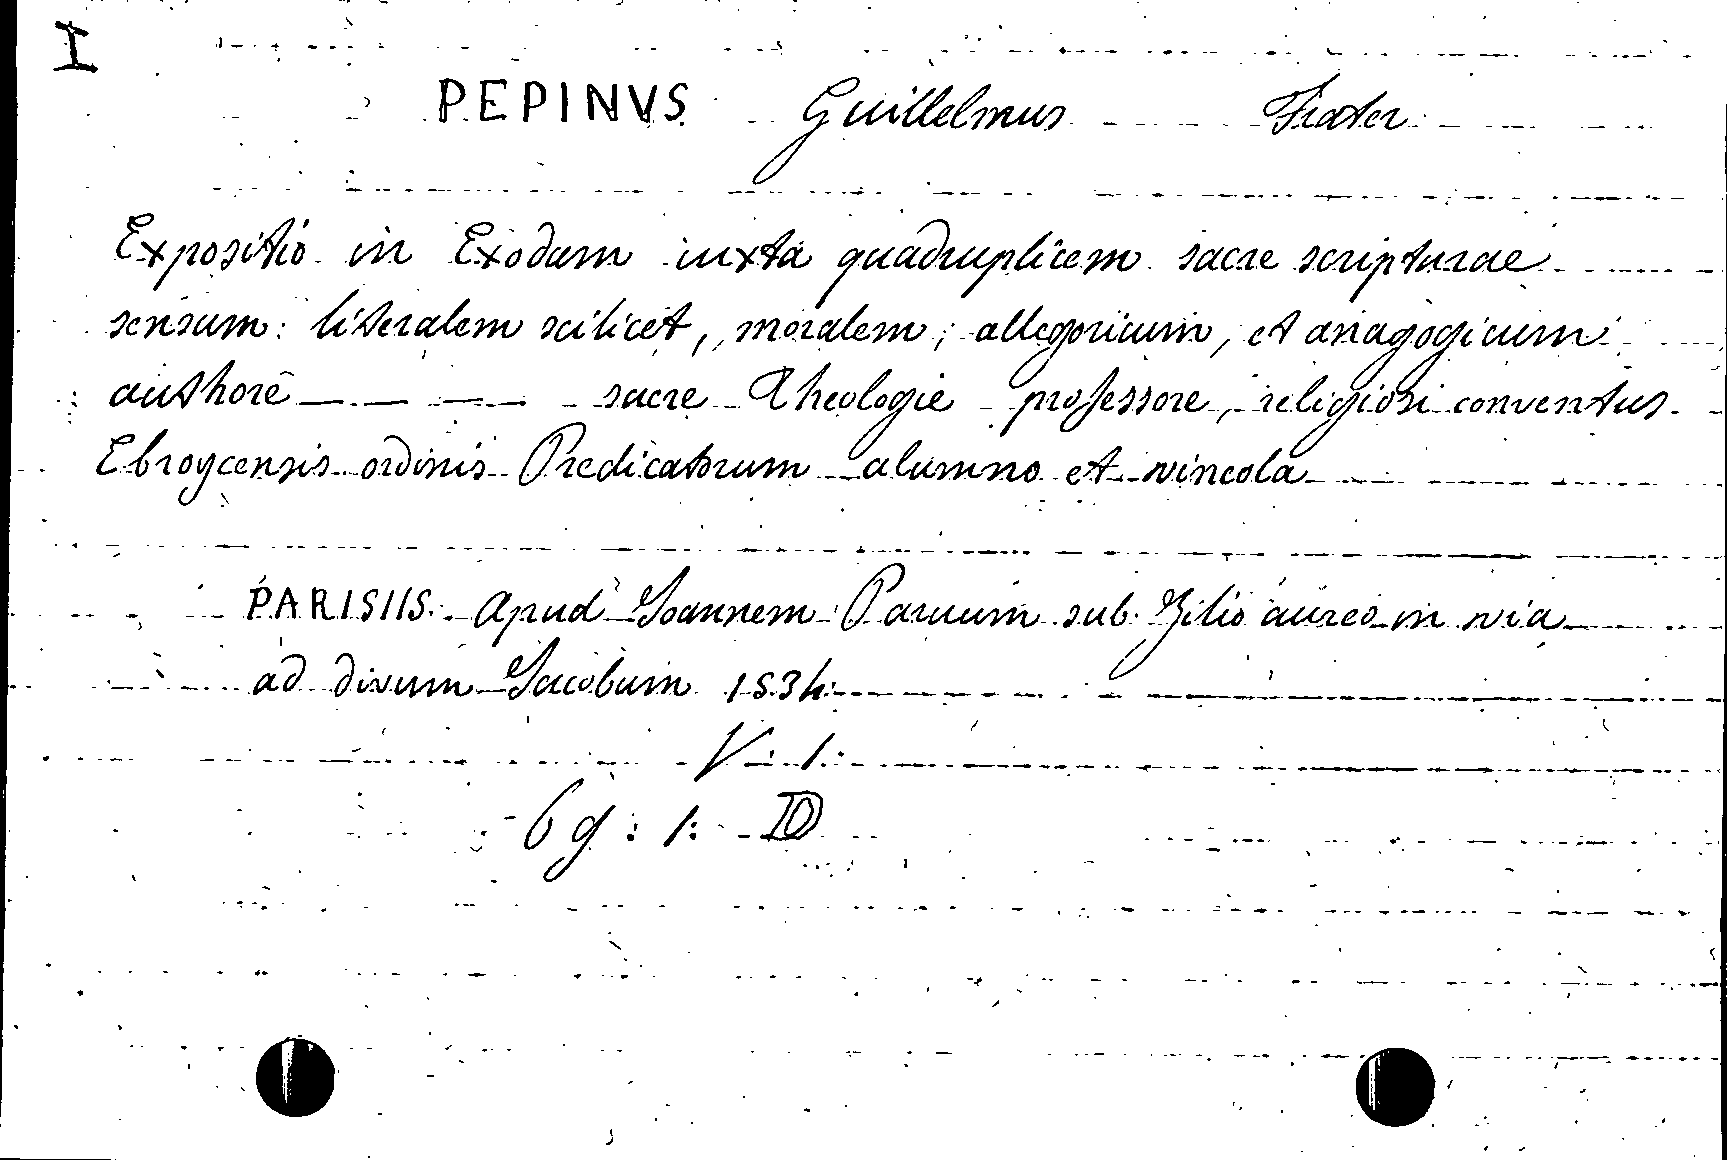 I
PEPINVS Guillelmus Frater
Expositio in Exodum iuxta quadruplicem sacre scripturae
sensum: literalem scilicet, moralem, allegoricum, et anagogicum
authore — — — sacre theologie professore, religiosi conventus
Ebroycensis ordinis Predicatorum alumno et vincola
PARISIIS. Apud Ioannem Paruum sub Lilio aureo in via
ad divum Jacobum 1534
V. 1:
6 g: 1: D